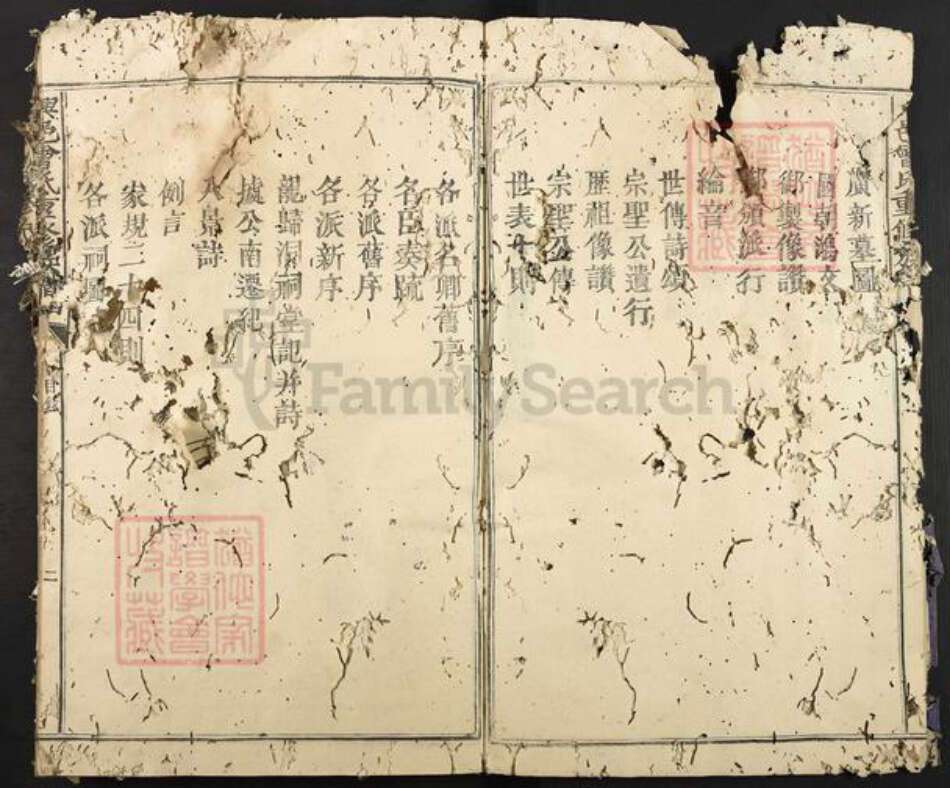 廣新墓圖
國朝鴻文
御製像讚
御頒派行
綸音
世傳詩頌
宗聖公遺行
歷祖像讚
宗聖公傳
世表十則
各派名卿舊序
名臣奏疏
各派舊序
各派新序
龍歸洞祠堂記并詩
據公南遷紀
八景詩
例言
家規二十四則
各派祠圖
興邑曾氏重修族譜
目錄
二
FamilySearch